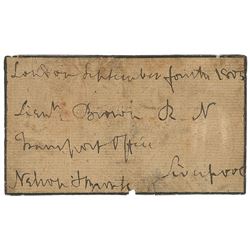 London September fourth 1805
Lieut Brown R N
Transport Office
Liverpool
Nelson & Bronte